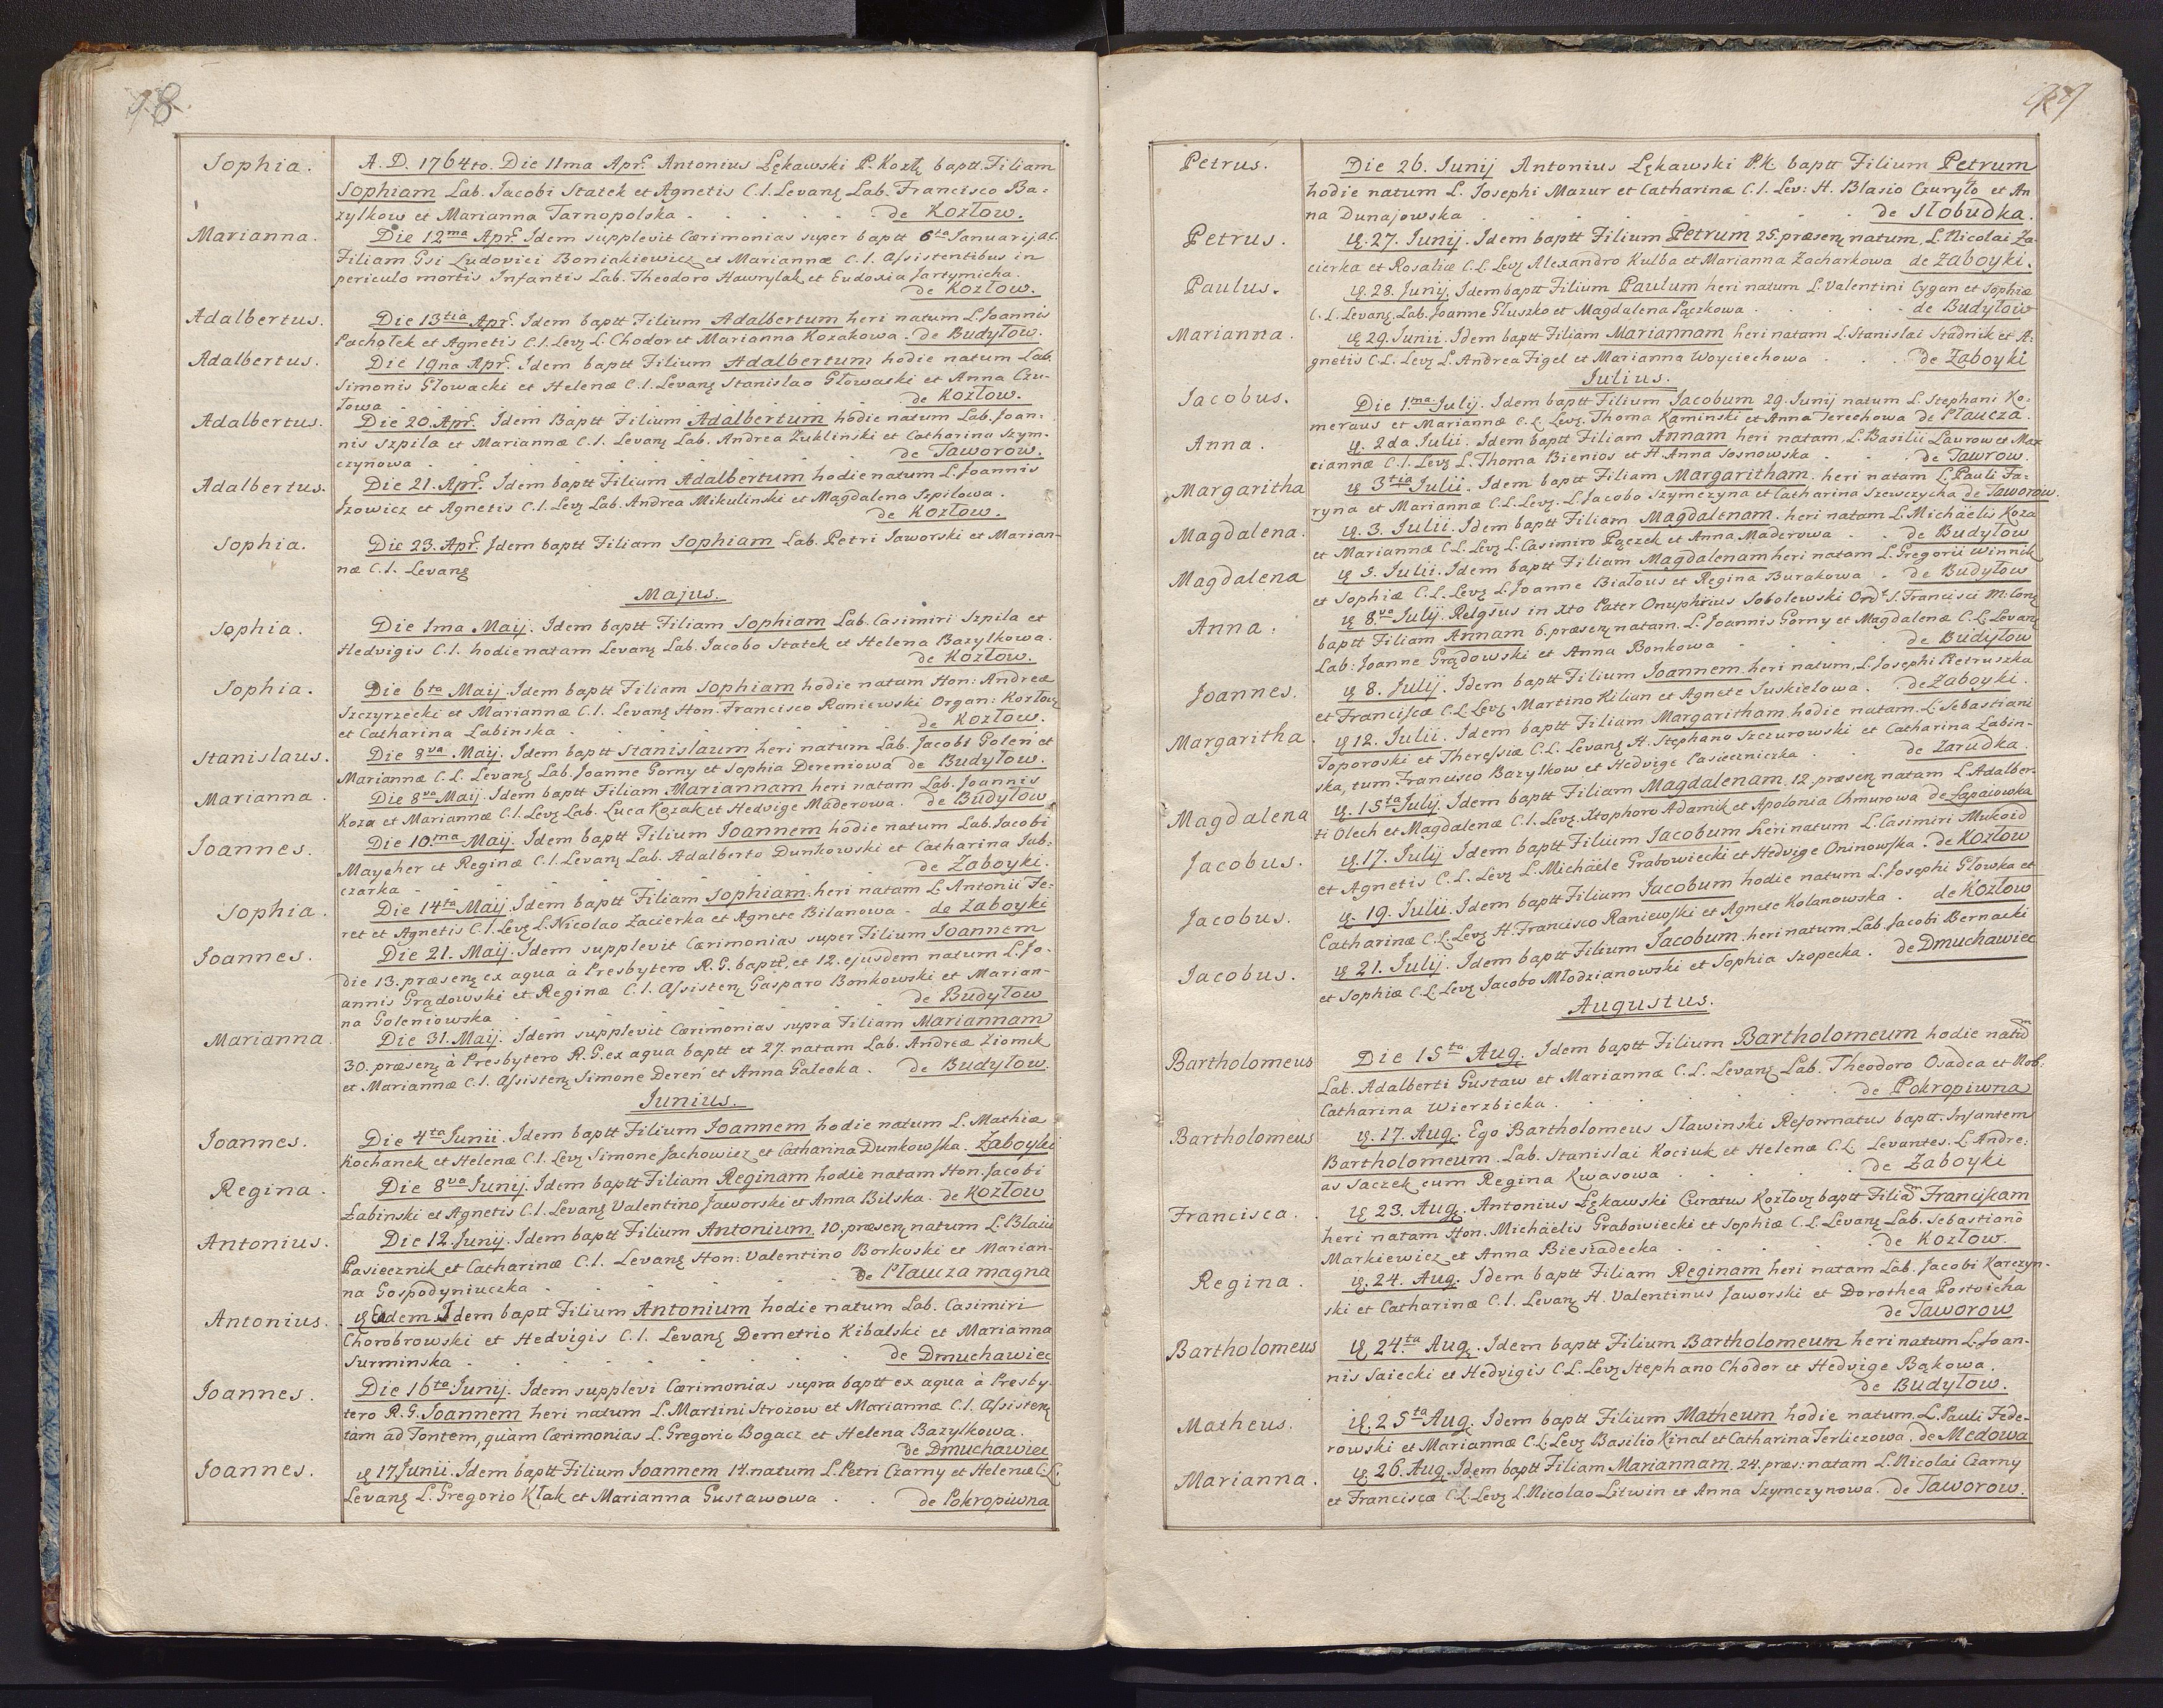 98.
Sophia. A. D. 1764to. Die 11ma Apr. Antonius Łękawski P. Kozł. baptt. Filiam
Sophiam Lab. Jacobi Statek et Agnetis C. l. Levanʒ Lab. Francisco Ba:
zylkow et Marianna Tarnopolska . . . . . de Kozłow.
Marianna. Die 12ma Apr. Idem supplevit Cærimonias super baptt 6ta Januarij. a. c.
Filiam Gsi Ludovici Boniakiewicz et Mariannæ C. l. Assistentibus in
periculo mortis Infantis Lab. Theodoro Hawrylak et Eudoxia Jartymicha.
de Kozłow.
Adalbertus. Die 13tia Apr. Idem baptt Filium Adalbertum heri natum L. Joannis
Pachołek et Agnetis C. l. Levʒ L. Chodor et Marianna Kozakowa. de Budyłow.
Adalbertus. Die 19na Apr. Idem baptt Filium Adalbertum hodie natum Lab.
Simonis Głowacki et Helenæ C. l. Levanʒ Stanislao Głowaski et Anna Czu-
łowa . . . . . de Kozłow.
Adalbertus. Die 20. Apr. Idem Baptt Filium Adalbertum hodie natum Lab. Joan:
nis Szpila et Mariannæ C. l. Levanʒ Lab. Andrea Zuklinski et Catharina Szym-
czynowa . . . . . de Taworow.
Adalbertus. Die 21. Apr. Idem baptt Filium Adalbertum hodie natum L. Joannis
Jzowicz et Agnetis C. l. Levʒ Lab. Andrea Mikulinski et Magdalena Szpilowa.
de Kozłow.
Sophia. Die 23. Apr. Idem baptt Filiam Sophiam Lab. Petri Jaworski et Marian-
næ C. l. Levanʒ
Majus.
Sophia. Die 1ma Maij. Idem baptt Filiam Sophiam Lab. Casimiri Szpila et
Hedvigis C. l. hodie natam Levanʒ Lab. Jacobo Statek et Helena Bazylkowa.
de Kozłow.
Sophia. Die 6ta Maij. Idem baptt Filiam Sophiam hodie natam Hon: Andreæ
Szczyrzecki et Mariannæ C. l. Levanʒ Hon. Francisco Raniewski Organ: Kozłovʒ
et Catharina Labinska . . . . . de Kozłow.
Stanislaus. Die 8va Maij. Idem baptt Stanislaum heri natum Lab. Jacobi Goleń et
Mariannæ C. L. Levanʒ Lab. Joanne Gorny et Sophia Dereniowa de Budyłow.
Marianna. Die 8va Maij. Idem baptt Filiam Mariannam heri natam Lab. Joannis
Koza et Mariannæ C. l. Levʒ Lab. Luca Kozak et Hedvige Maderowa. de Budyłow
Joannes. Die 10.ma Maij. Idem baptt Filium Joannem hodie natum Lab. Jacobi
Maycher et Reginæ C. l. Levanʒ Lab. Adalberto Dunkowski et Catharina Jub:
czarka . . . . . de Zaboyki.
Sophia. Die 14ta Maij. Idem baptt Filiam Sophiam. heri natam L. Antonii Te:
ret et Agnetis C. l. Levʒ L. Nicolao Zacierka et Agnete Bilanowa. de Zaboyki
Joannes. Die 21. Maij. Idem supplevit Cærimonias super Filium Joannem
die 13. præsenʒ ex aqua à Presbytero R. G. baptt, et 12. ejusdem natum L. Jo-
annis Grądowski et Reginæ C. l. Assistenʒ Gasparo Bonkowski et Marian-
na Goleniowska . . . . . de Budyłow
Marianna. Die 31. Maij. Idem supplevit Cærimonias supra Filiam Mariannam
30. præsenʒ à Presbytero R. G. ex aqua baptt et 27. natam Lab. Andreæ Ziomek
et Mariannæ C. l. Assistenʒ Simone Dereń et Anna Galecka. de Budyłow.
Junius.
Joannes. Die 4ta Junii. Idem baptt Filium Joannem hodie natum L. Mathiæ
Kochanek et Helenæ C. l. Levʒ Simone Jachowicz et Catharina Dunkowska. Zaboyki
Regina. Die 8va Junij. Idem baptt Filiam Reginam hodie natam Hon. Jacobi
Łabinski et Agnetis C. l. Levanʒ Valentino Jaworski et Anna Bilska. de Kozłow
Antonius. Die 12. Junij. Idem baptt Filium Antonium, 10. præsenʒ natum L. Blasii
Pasiecznik et Catharinæ C. l. Levanʒ Hon: Valentino Borkoski et Marian-
na Gospodyniuczka . . . . . de Pławcza magna
Antonius. Eadem Idem baptt Filium Antonium hodie natum Lab. Casimiri
Chorobrowski et Hedvigis C. l. Levanʒ Demetrio Kibalski et Marianna
Surminska . . . . . de Dmuchawiec
Joannes. Die 16ta Junij. Idem supplevi Cærimonias supra baptt ex aqua à Presby-
tero R. G. Joannem heri natum L. Martini Strozow et Mariannæ C. l. Assistenʒ
tam ad Fontem, quàm Cærimonias L. Gregorio Bogacz et Helena Bazylkowa.
de Dmuchawiec
Joannes. 17 Junii. Idem baptt Filium Joannem 14. natum L. Petri Czarny et Helenæ C. L.
Levanʒ L. Gregorio Kłak et Marianna Gustawowa . . de Pokropiwna
Petrus. Die 26. Junij Antonius Łękawski P. K. baptt Filium Petrum
hodie natum L. Josephi Mazur et Catharinæ C. l. Lev: H. Blasio Czuryło et An
na Dunajowska . . . . . de Słobudka.
Petrus. 27. Junij. Idem baptt Filium Petrum 25. præsenʒ natum, L. Nicolai Za-
cierka et Rosaliæ C. L. Levʒ Alexandro Kulba et Marianna Zacharkowa de Zaboyki.
Paulus. 28. Junij. Idem baptt Filium Paulum heri natum L. Valentini Cygan et Sophiæ
C. L. Levanʒ Lab. Joanne Głuszko et Magdalena Pączkowa . . . . . de Budyłow
Marianna. 29. Junii. Idem baptt Filiam Mariannam heri natam L. Stanislai Stadnik et A:
gnetis C. L. Levʒ L. Andrea Figel et Marianna Woyciechowa . . . de Zaboyki
Julius.
Jacobus. Die 1.ma Julij. Idem baptt Filium Jacobum 29. Junij natum L. Stephani Ko:
meraus et Mariannæ C. L. Levʒ. Thoma Kaminski et Anna Terechowa de Płaucza.
Anna. 2da Julii. Idem baptt Filiam Annam heri natam, L. Basilii Laurow et Mar
riannæ C. l. Levʒ L. Thoma Bienios et H. Anna Sosnowska . . . de Tawrow.
Margaritha 3tia Julii. Idem baptt Filiam Margaritham. heri natam L. Pauli Fa-
ryna et Mariannæ C. L. Levʒ. L. Jacobo Szymczyna et Catharina Szewczycha de Taworow.
Magdalena. 3. Julii. Idem baptt Filiam Magdalenam. heri natam L. Michäelis Koza
et Mariannæ C. L. Levʒ L. Casimiro Pączek et Anna Maderowa . . de Budyłow
Magdalena 5. Julii. Idem baptt Filiam Magdalenam heri natam L. Gregorii Winnik
et Sophiæ C. L. Levʒ L. Joanne Białous et Regina Burakowa . de Budyłow
Anna. 8.va Julij. Relgsus in Xto Pater Onuphrius Sobolewski Ord. S. Francisci M: Conʒ
baptt Filiam Annam 6. præsenʒ natam. L. Joannis Gorny et Magdalenæ C. L. Levanʒ
Lab: Joanne Grądowski et Anna Bonkowa . . . de Budyłow
Joannes. 8. Julij. Idem baptt Filium Joannem heri natum, L. Josephi Pietruszka
et Franciscæ C. L. Levʒ Martino Kilian et Agnete Juskielowa. de Zaboyki.
Margaritha. 12. Julii. Idem baptt Filiam Margaritham. hodie natam. L. Sebastiani
Toporoski et Theressiæ C. L. Levanʒ H. Stephano Szczurowski et Catharina Labin-
ska, tum Francisco Bazylkow et Hedvige Pasieczniczka . . de Zarudka.
Magdalena 15ta Julij. Idem baptt Filiam Magdalenam. 12. præsenʒ natam L. Adalber-
ti Olech et Magdalenæ C. l. Levʒ. Xtophoro Adamik et Apolonia Chmurowa de Łapaiowka
Jacobus. 17. Julij Idem baptt Filium Jacobum heri natum L. Casimiri Mukoid
et Agnetis C. L. Levʒ L. Michäele Grabowiecki et Hedvige Oninowska. de Kozłow
Jacobus. 19. Julii. Idem baptt Filium Jacobum hodie natum L. Josephi Głowka et
Catharinæ C. L. Levʒ H. Francisco Raniewski et Agnete Kolanowska. de Kozłow
Jacobus. 21. Julij. Idem baptt Filium Jacobum. heri natum, Lab. Jacobi Bernacki
et Sophiæ C. L. Levʒ Jacobo Młodzianowski et Sophia Szopecka. de Dmuchawiec
Augustus.
Bartholomeus Die 15ta Aug. Idem baptt Filium Bartholomeum hodie natum
Lab. Adalberti Gustaw et Mariannæ C. L. Levanʒ Lab. Theodoro Osadca et Nob:
Catharina Wierzbicka . . . . . de Pokropiwna
Bartholomeus 17. Aug. Ego Bartholomeus Sławinski Reformatus baptt. Infantem
Bartholomeum. Lab. Stanislai Kociuk et Helenæ C. L. Levantes. L. Andre:
as Saczek cum Regina Kwasowa . . . . . de Zaboyki
Francisca. 23. Aug. Antonius Łękawski Curatus Kozłovʒ baptt Filiam Franciscam
heri natam Hon. Michäelis Grabowiecki et Sophiæ C. L. Levanʒ Lab. Sebastiano
Markiewicz et Anna Biesiadecka . . . . . de Kozłow.
Regina. 24. Aug. Idem baptt Filiam Reginam heri natam Lab. Jacobi Karczyn-
ski et Catharinæ C. l. Levanʒ H. Valentinus Jaworski et Dorothea Postoicha
de Taworow
Bartholomeus 24.ta Aug. Idem baptt Filium Bartholomeum heri natum L. Joan-
nis Saiecki et Hedvigis C. L. Levʒ Stephano Chodor et Hedvige Bąkowa.
de Budyłow.
Matheus. 25ta Aug. Idem baptt Filium Matheum hodie natum. L. Pauli Fede-
rowski et Mariannæ C. L. Levʒ Basilio Kinal et Catharina Terliczowa. de Medowa
Marianna. 26. Aug. Idem baptt Filiam Mariannam. 24. præs: natam L. Nicolai Czarny
et Franciscæ C. L. Levʒ L. Nicolao Litwin et Anna Szymczynowa. de Taworow.